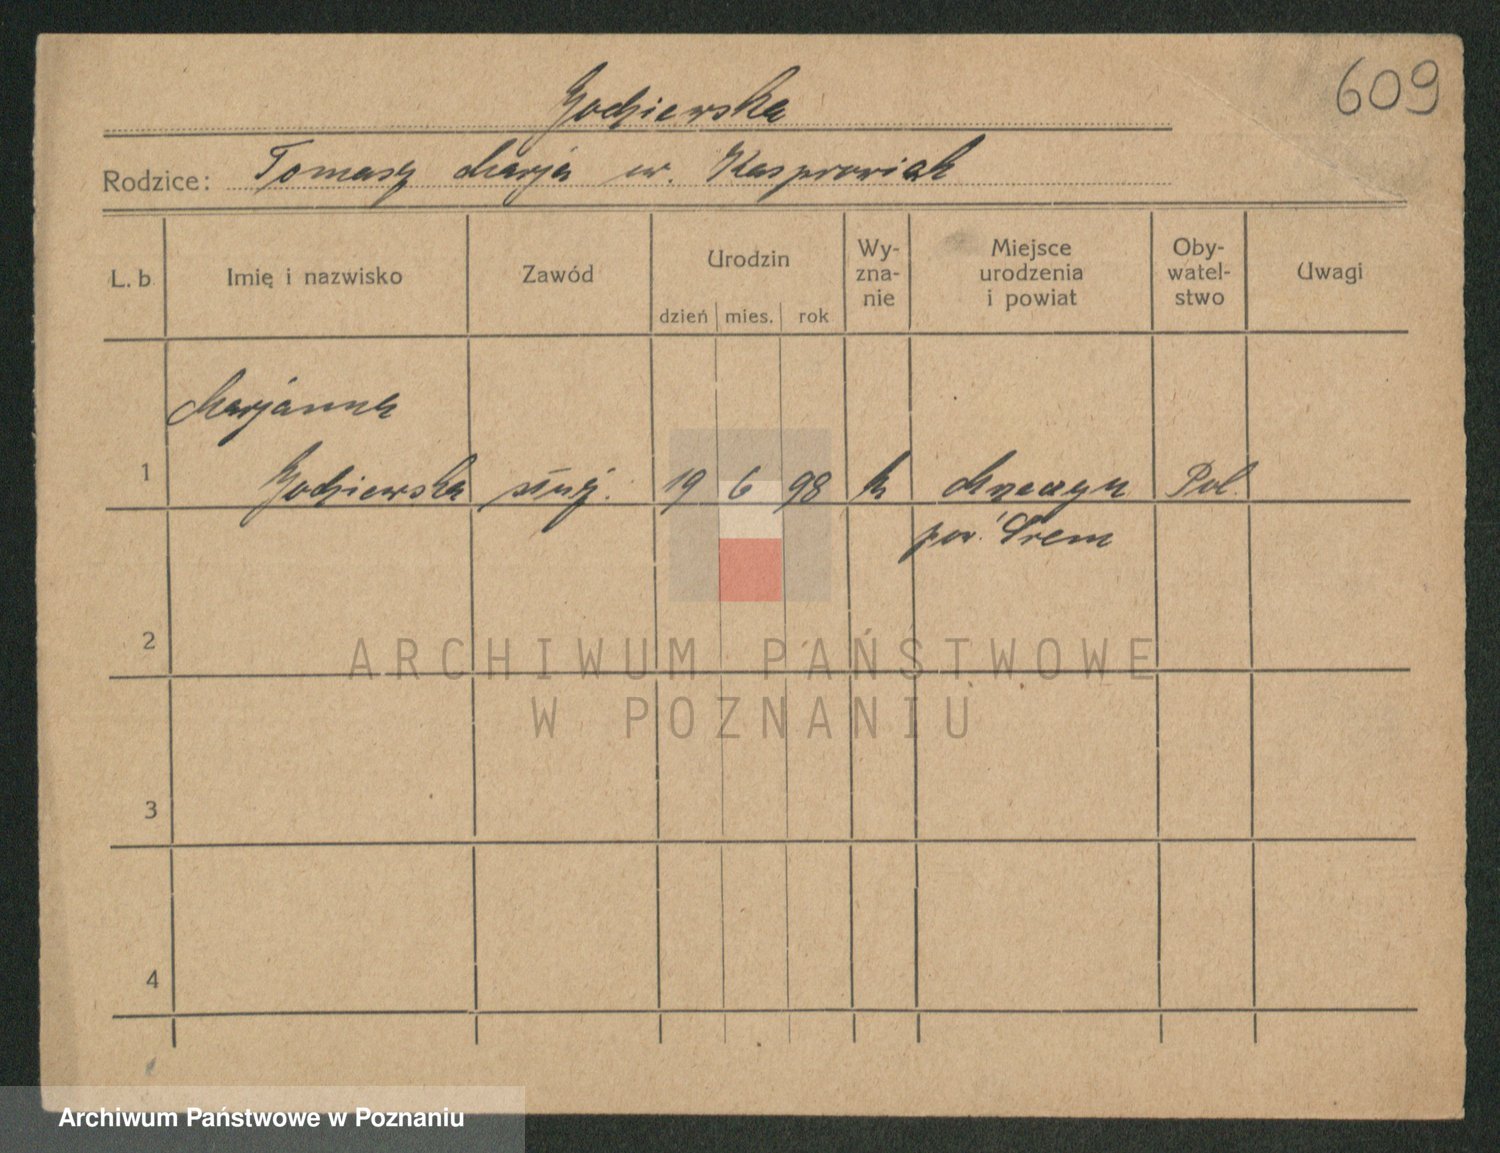 609
Godziewska
Rodzice: Tomasz Marja ur. Kasprowiak
L. b
Imię i nazwisko
Zawód
Urodzin
dzień mies. rok
Wy-
zna-
nie
Miejsce
urodzenia
i powiat
Oby-
watel-
stwo
Uwagi
Marjanna
1 Godziewska służ. 19 6 98 k Pol.
pow. Śrem
2
3
4
ARCHIWUM PAŃSTWOWE
W POZNANIU
Archiwum Państwowe w Poznaniu